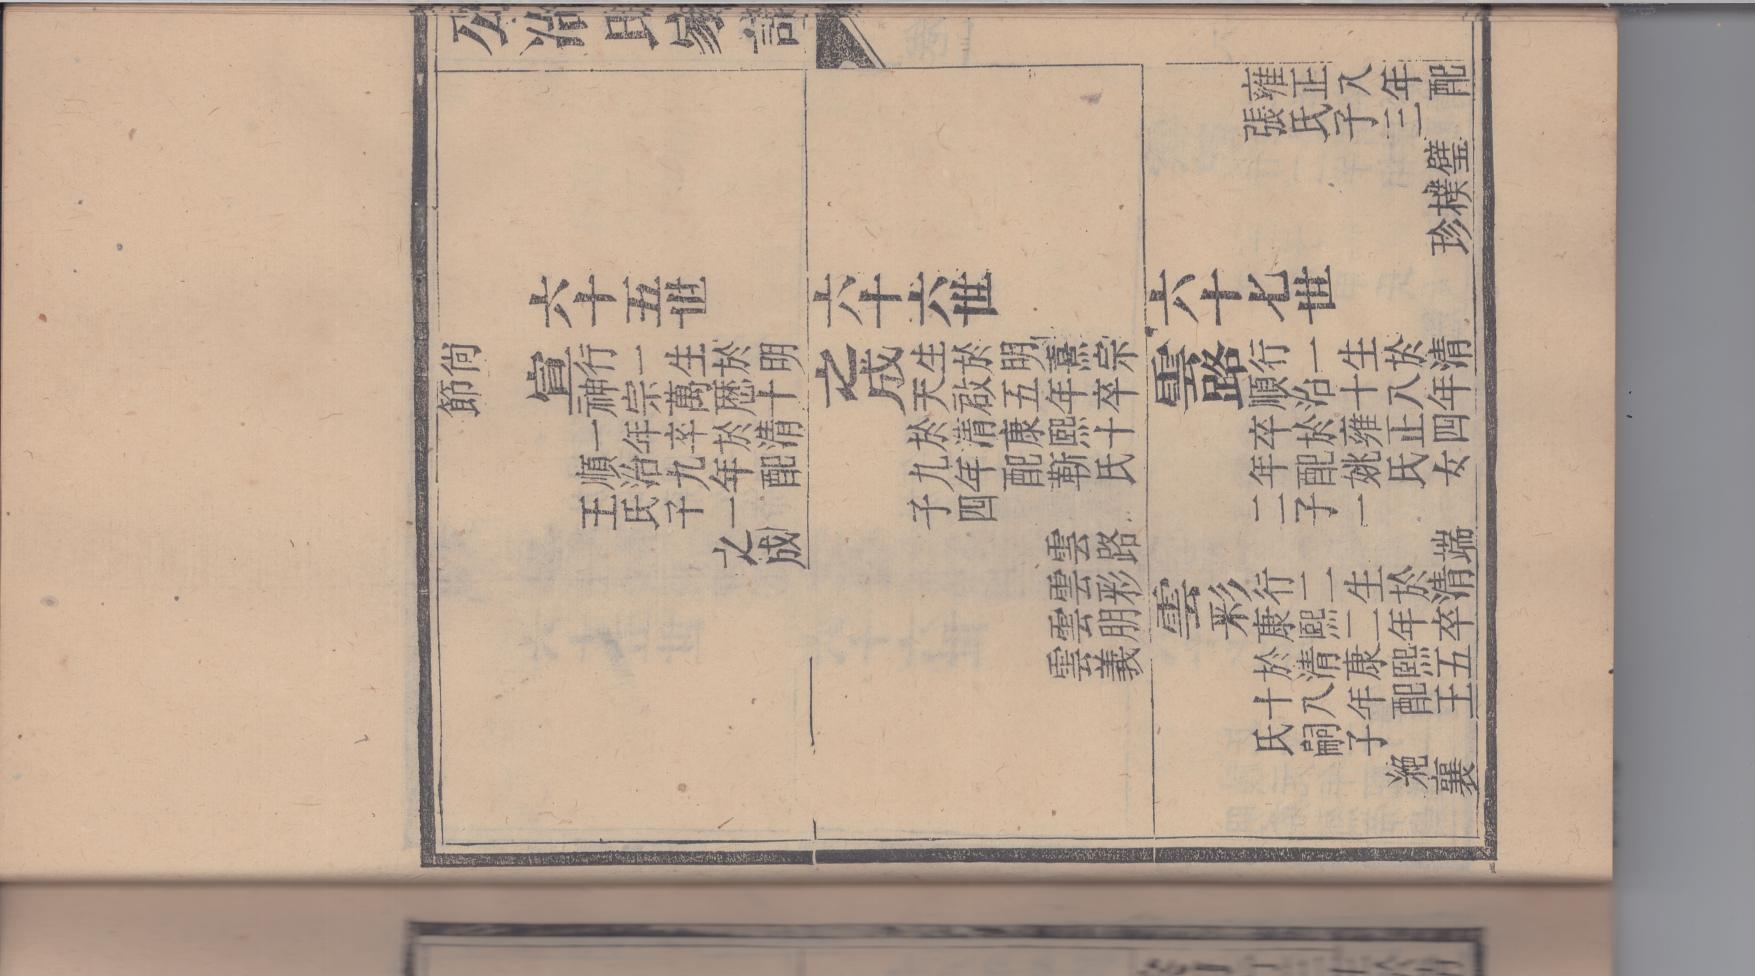 公冶氏家譜
六十五世
尚節
宣 行一生於明
神宗萬曆十
一年卒於清
順治九年配
王氏子二
之成
六十六世
之成 生於明熹宗
天啟五年卒
於清康熙十
九年配靳氏
子四
雲路
雲彩
雲朋
雲義
雍正八年配
張氏子三
璧
樸
珍
六十七世
雲路 行一生於清
順治十八年
卒於雍正四
年配姚氏女
二子一
端
雲彩 行二生於清
康熙二年卒
於清康熙五
十八年配王
氏嗣子
襄